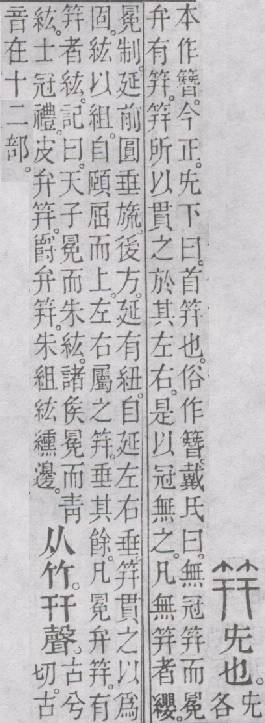 筓 兂也。兂
各
本作簪。今正。兂下曰。首筓也。俗作簪。戴氏曰。無冠筓而冕
弁有筓。筓所以貫之於其左右。是以冠無之。凡無筓者纓。
冕制。延前圓垂旒。後方。延有紐。自延左右垂。筓貫之以爲
固。紘以組。自頤屈而上。左右屬之筓。垂其餘。凡冕弁筓。有
筓者紘。記曰。天子冕而朱紘。諸侯冕而靑
紘。士冠禮。皮弁筓。爵弁筓。朱組紘纁邊。
从竹。幵聲。古兮
切。古
音在十二部。